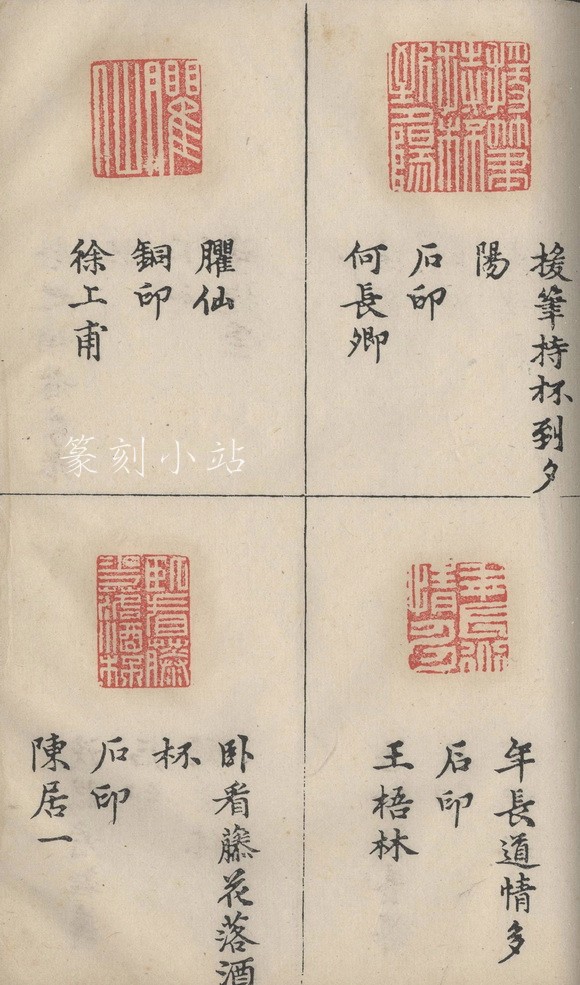 援筆持杯到夕
陽
石印
何長卿
臞仙
銅印
徐上甫
年長道情多
石印
王梧林
卧看藤花落酒
杯
石印
陳居一
篆刻小站